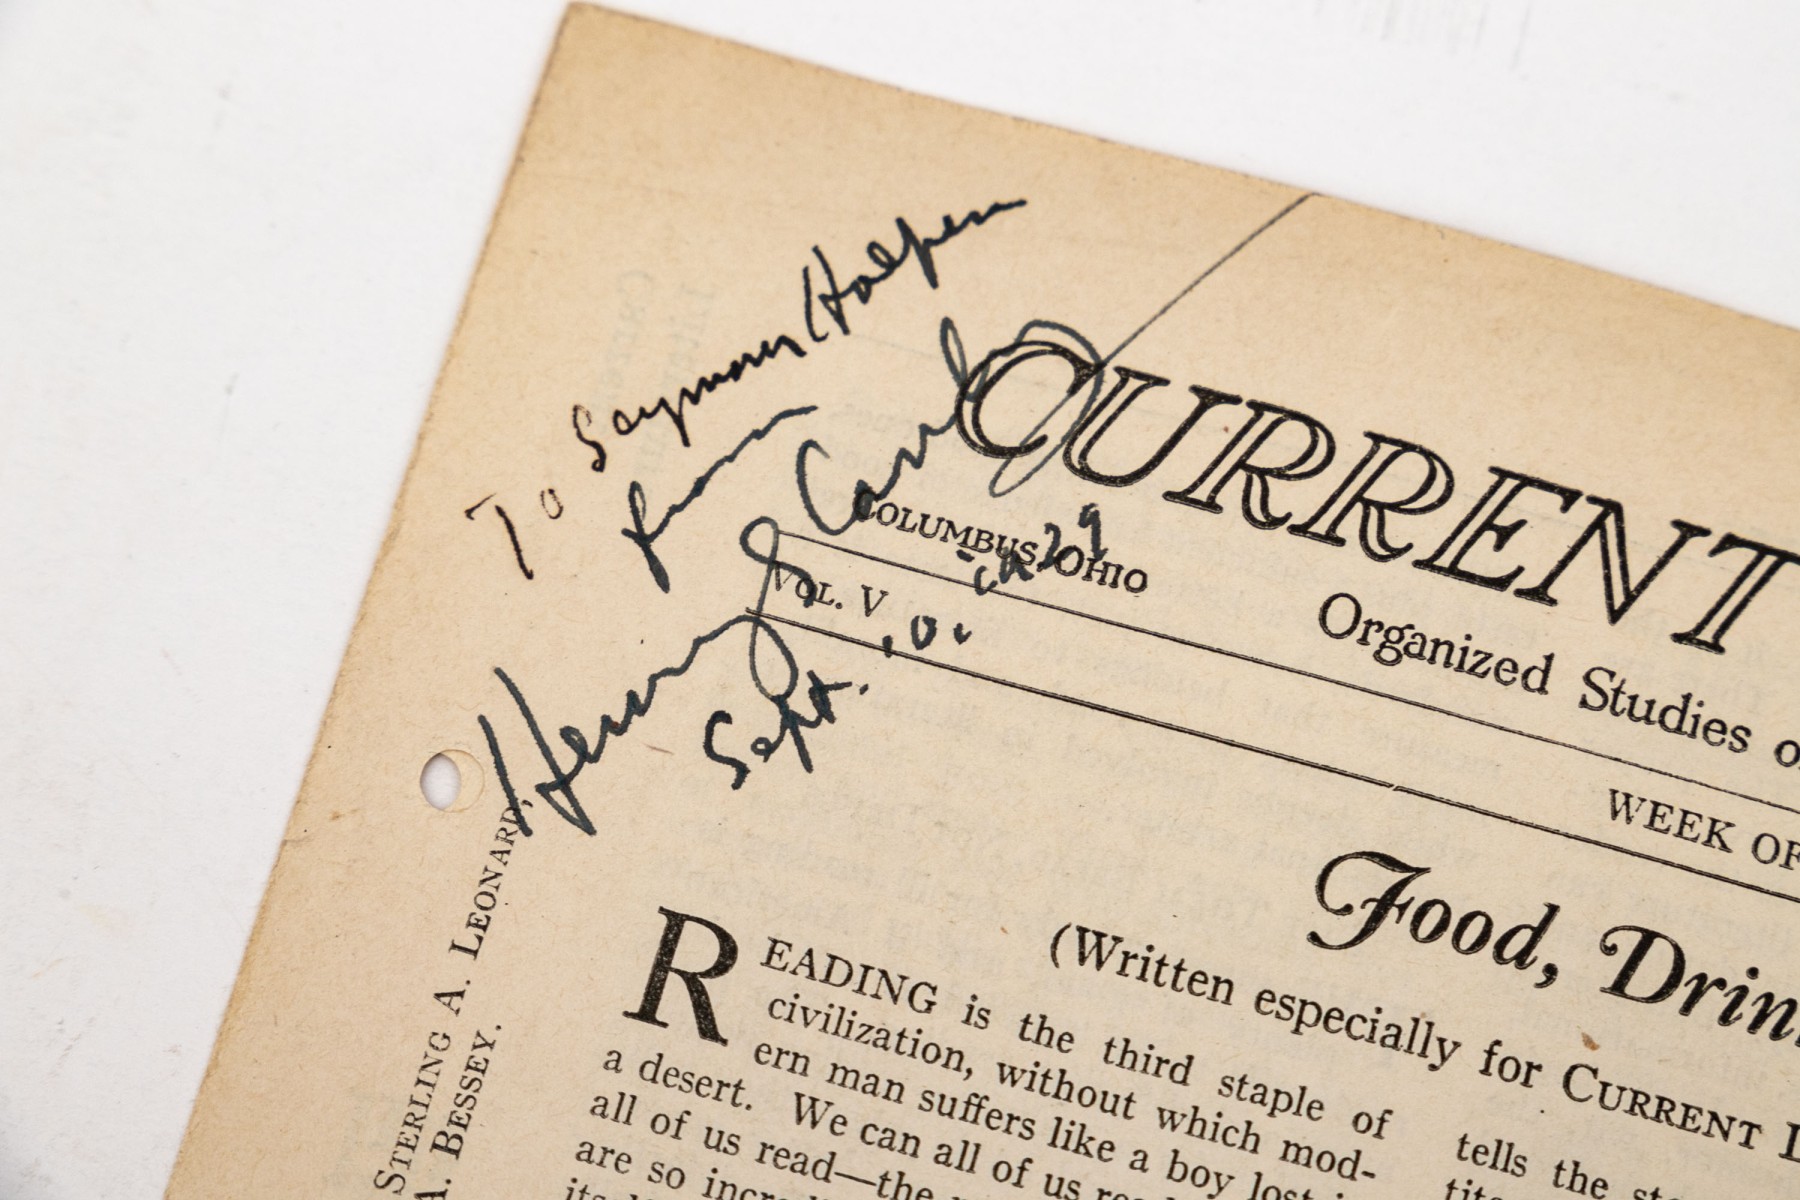 To Seymour Halpern
from
Henry S Canby
Sept. 10. 1929
CURRENT
COLUMBUS, OHIO
VOL. V
Organized Studies
WEEK OF
Food,
(Written especially for CURRENT
READING is the third staple of
civilization, without which mod-
ern man suffers like a boy lost
a desert. We can all of us
all of us read—the
are so
tells the
STERLING A. LEONARD,
A. BESSEY.